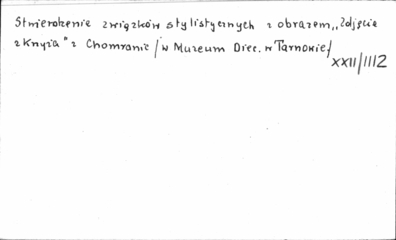 Stwierdzenie związków stylistycznych z obrazem „Zdjęcie
z Krzyża" z Chomranic /w Muzeum Diec. w Tarnowie/
XXII/1112